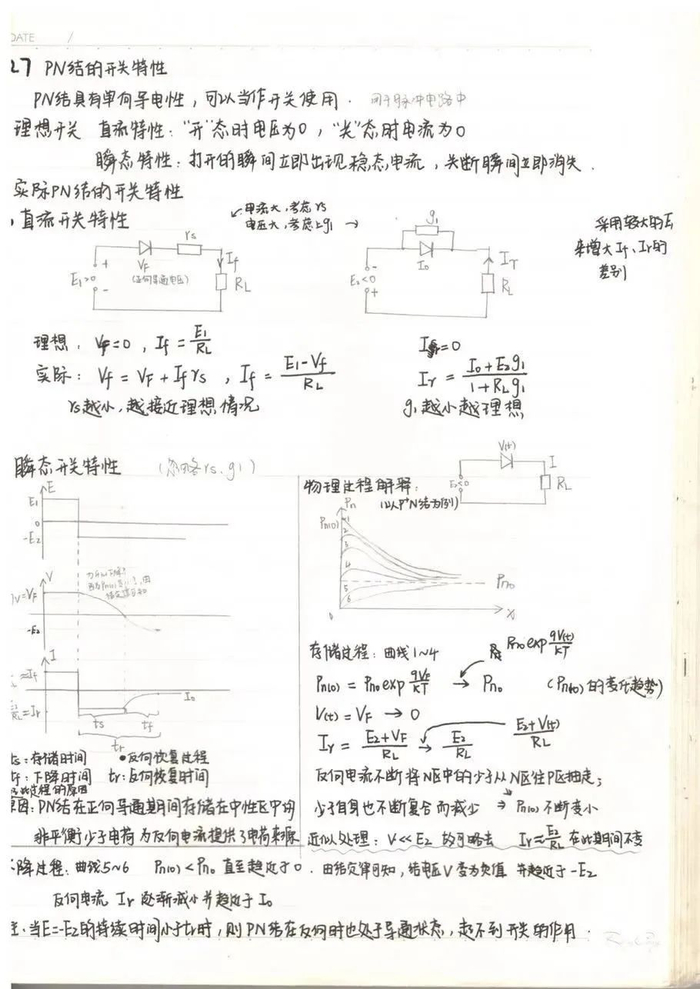 DATE /
2.7 PN结的开关特性
PN结具有单向导电性，可以当作开关使用. 用于脉冲电路中
理想开关 直流特性："开"态时电压为0，"关"态时电流为0
瞬态特性：打开的瞬间立即出现稳态电流，关断瞬间立即消失.
实际PN结的开关特性
直流开关特性
电流大,考虑rs
电压大,考虑上g1
采用较大的E
来增大If、Ir的
差别
rs
VF
(正向导通电压)
E1>0
+
-
If
RL
g1
I0
E2<0
-
+
Ir
RL
理想：VF=0，If=E1/RL
实际：Vf=VF+Ifrs，If=(E1-Vf)/RL
rs越小,越接近理想情况
Ir=0
Ir=(I0+E2g1)/(1+RLg1)
g1越小越理想
瞬态开关特性 (忽略rs、g1)
E
E1
0
-E2
V
VF
-E2
I
If
Ir
I0
ts
tf
tr
ts：存储时间 ●反向恢复过程
tf：下降时间 tr：反向恢复时间
过程的原因
原因：PN结在正向导通期间存储在中性区中的
非平衡少子电荷为反向电流提供了电荷来源
物理过程解释：
(以P+N结为例)
V(t)
I
E2<0
RL
Pn
Pn(0)
1
2
3
4
5
6
Pn0
0
x
存储过程：曲线1~4
Pn0 exp qV(t)/kT
Pn(0)=Pn0 exp qVF/kT → Pn0 (Pn(0)的变化趋势)
V(t)=VF → 0
Ir=(E2+VF)/RL → E2/RL
(E2+V(t))/RL
反向电流不断将N区中的少子从N区往P区抽走；
少子自身也不断复合而减少 → Pn(0)不断变小
近似处理：V<<E2 故可略去 Ir≈E2/RL 在此期间不变
下降过程：曲线5~6 Pn(0)<Pn0 直至趋近于0. 由结定律可知，结电压V变为负值 并趋近于-E2
反向电流 Ir 逐渐减小并趋近于 I0
注：当E=-E2的持续时间小于tr时，则PN结在反向时也处于导通状态，起不到开关的作用.